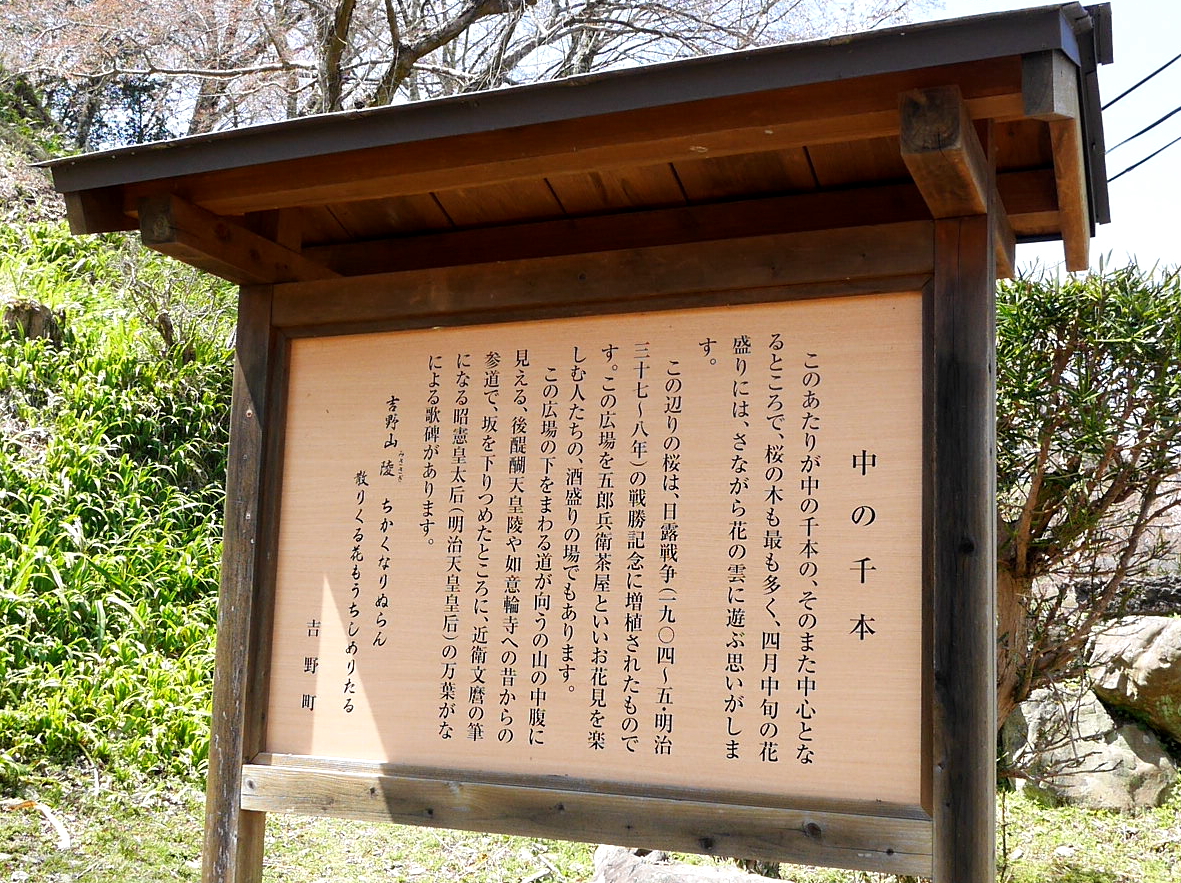 中の千本
このあたりが中の千本の、そのまた中心とな
るところで、桜の木も最も多く、四月中旬の花
盛りには、さながら花の雲に遊ぶ思いがしま
す。
この辺りの桜は、日露戦争（一九〇四～五・明治
三十七～八年）の戦勝記念に増植されたもので
す。この広場を五郎兵衛茶屋といいお花見を楽
しむ人たちの、酒盛りの場でもあります。
この広場の下をまわる道が向うの山の中腹に
見える、後醍醐天皇陵や如意輪寺への昔からの
参道で、坂を下りつめたところに、近衛文麿の筆
になる昭憲皇太后（明治天皇皇后）の万葉がな
による歌碑があります。
吉野山陵 ちかくなりぬらん
みささぎ
散りくる花もうちしめりたる
吉野町